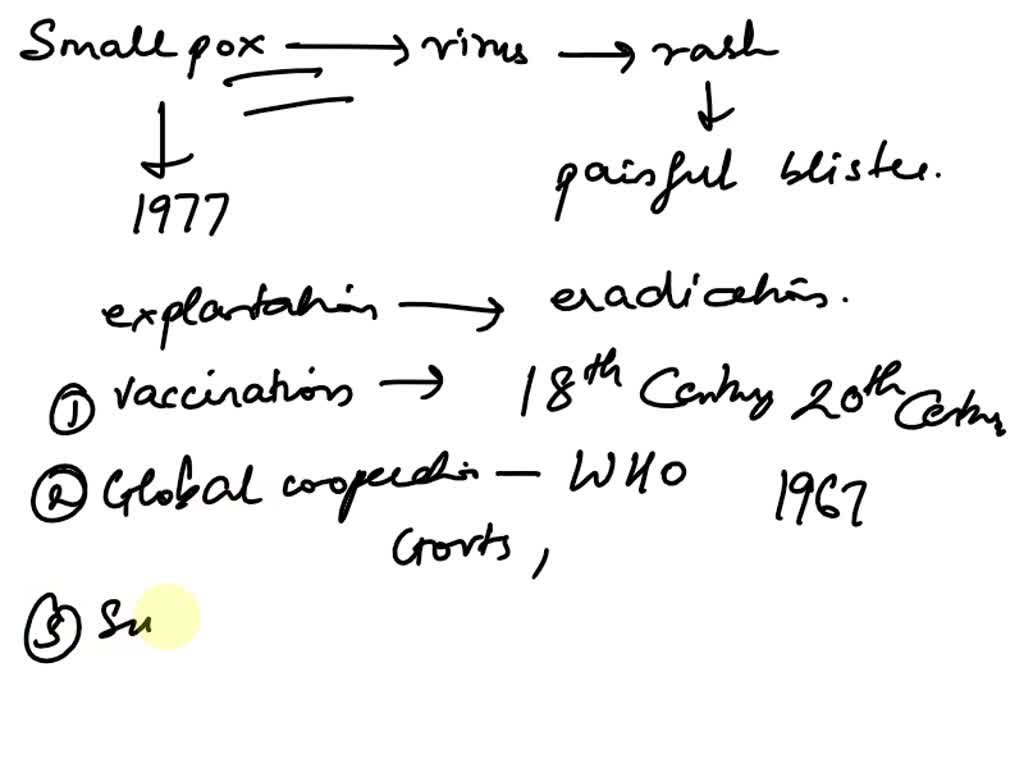 Small pox → virus → rash
↓ ↓
1977 painful blister.
explantation → eradication.
① vaccination → 18th Century 20th Century
② Global cooperation — WHO 1967
Govts,
③ Su